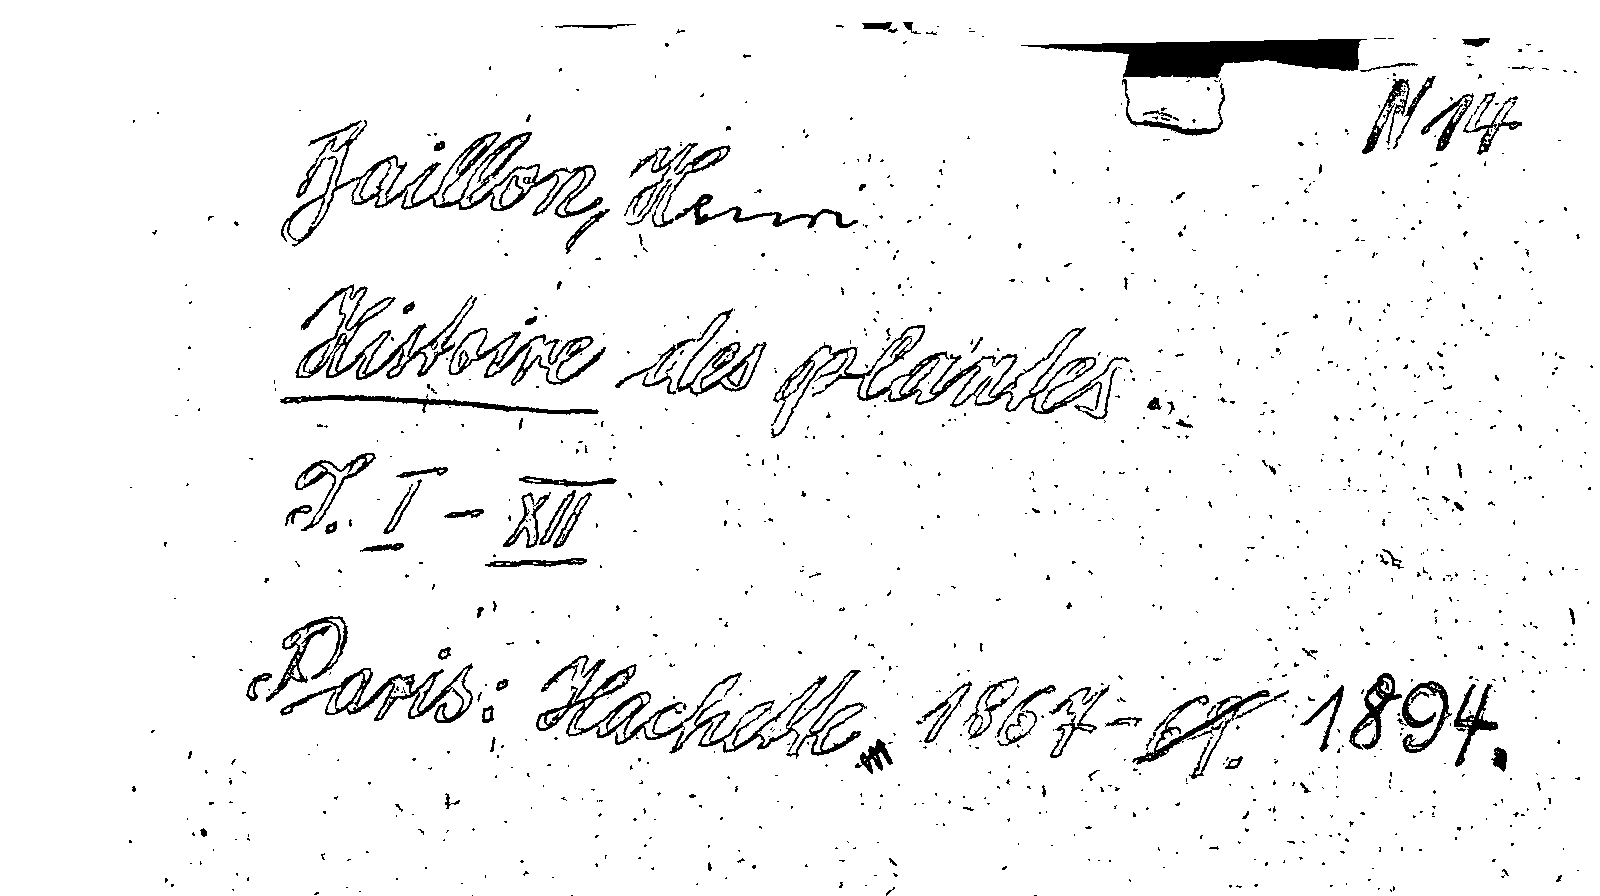 N 14
Baillon, Henri
Histoire des plantes.
T. I - XII
Paris: Hachette, 1867-69. 1894.